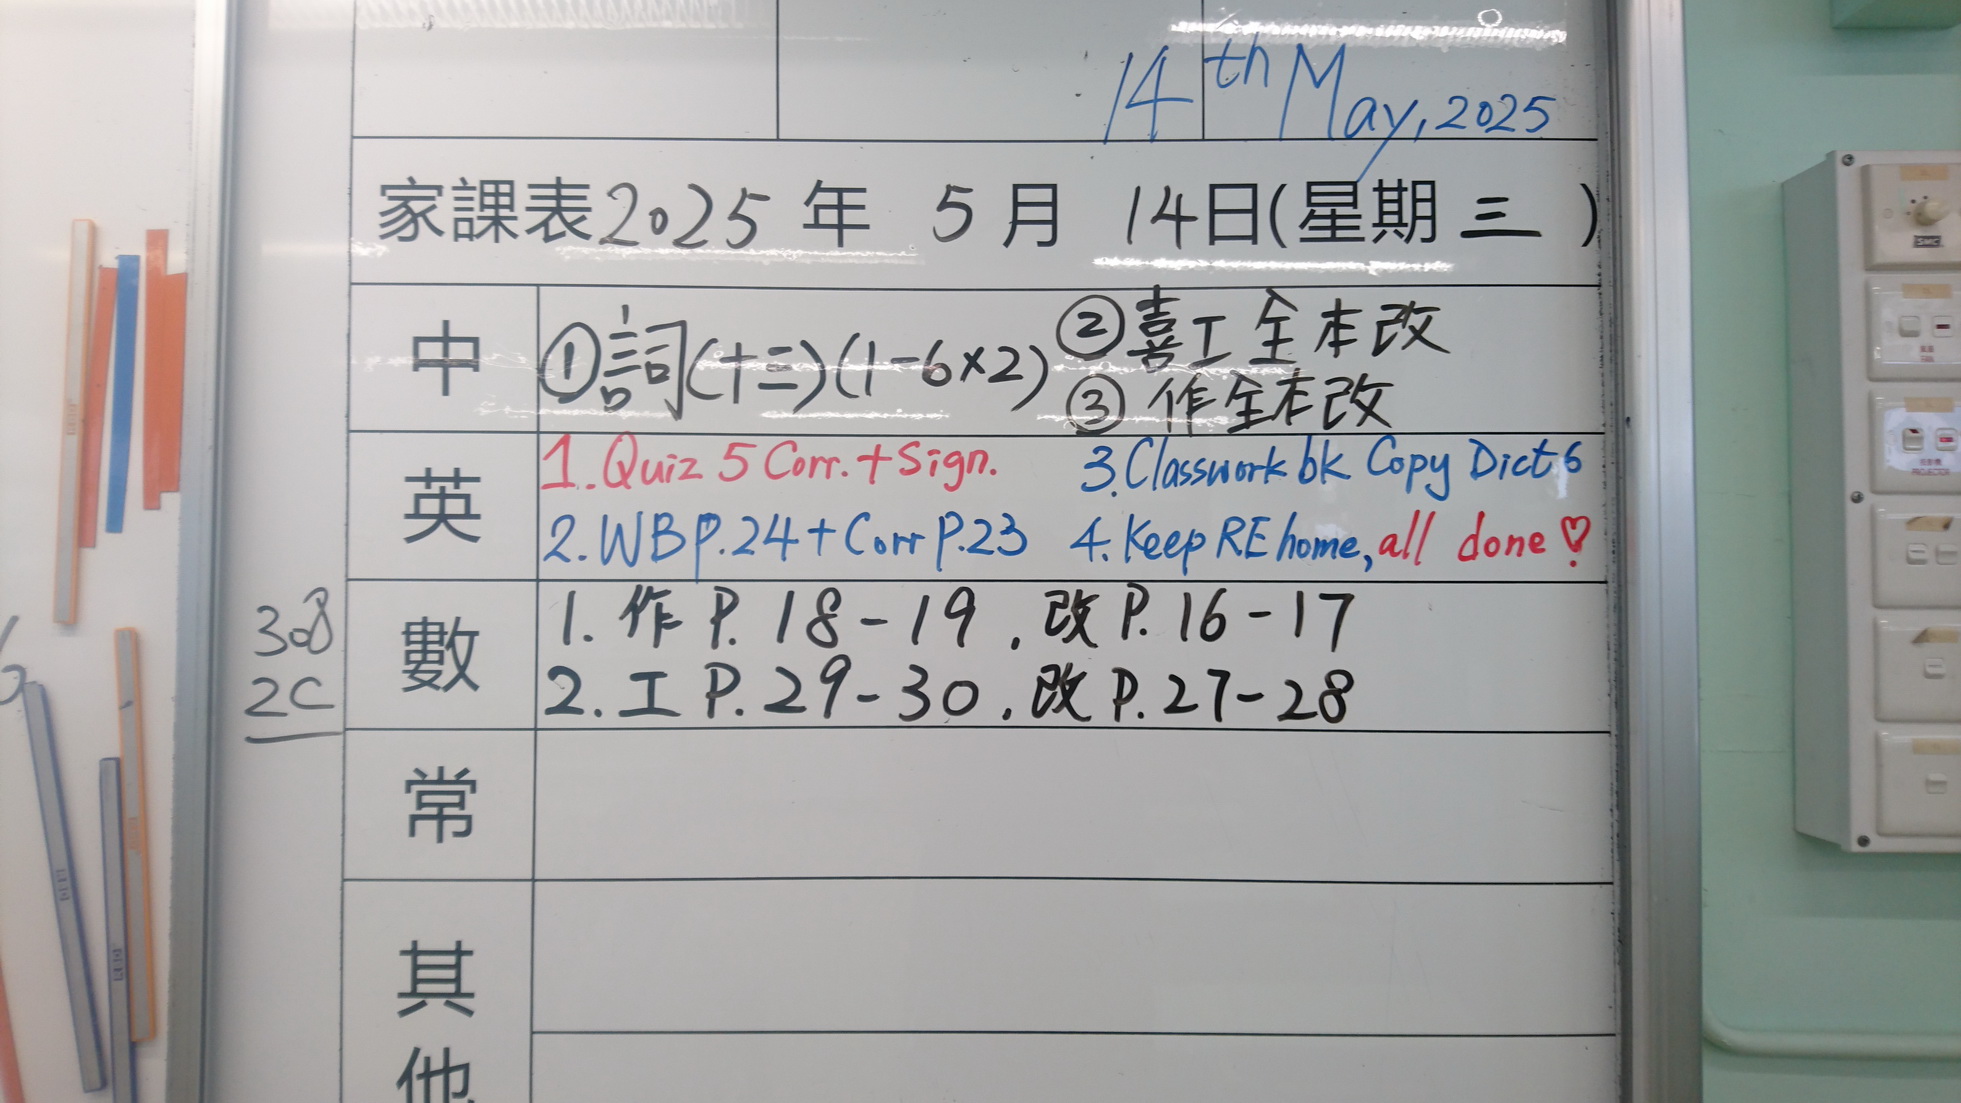 14th May, 2025
家課表2025年 5月 14日(星期三)
中
①詞(十三)(1-6×2)
②喜工全本改
③作全本改
英
1. Quiz 5 Corr. + Sign.
2. WB P.24 + Corr P.23
3. Classwork bk Copy Dict 6
4. Keep RE home, all done♡!
數
1. 作 P. 18-19, 改 P. 16-17
2. 工 P. 29-30, 改 P. 27-28
308
2C
常
其他
SMC
FAN
PROJECTOR